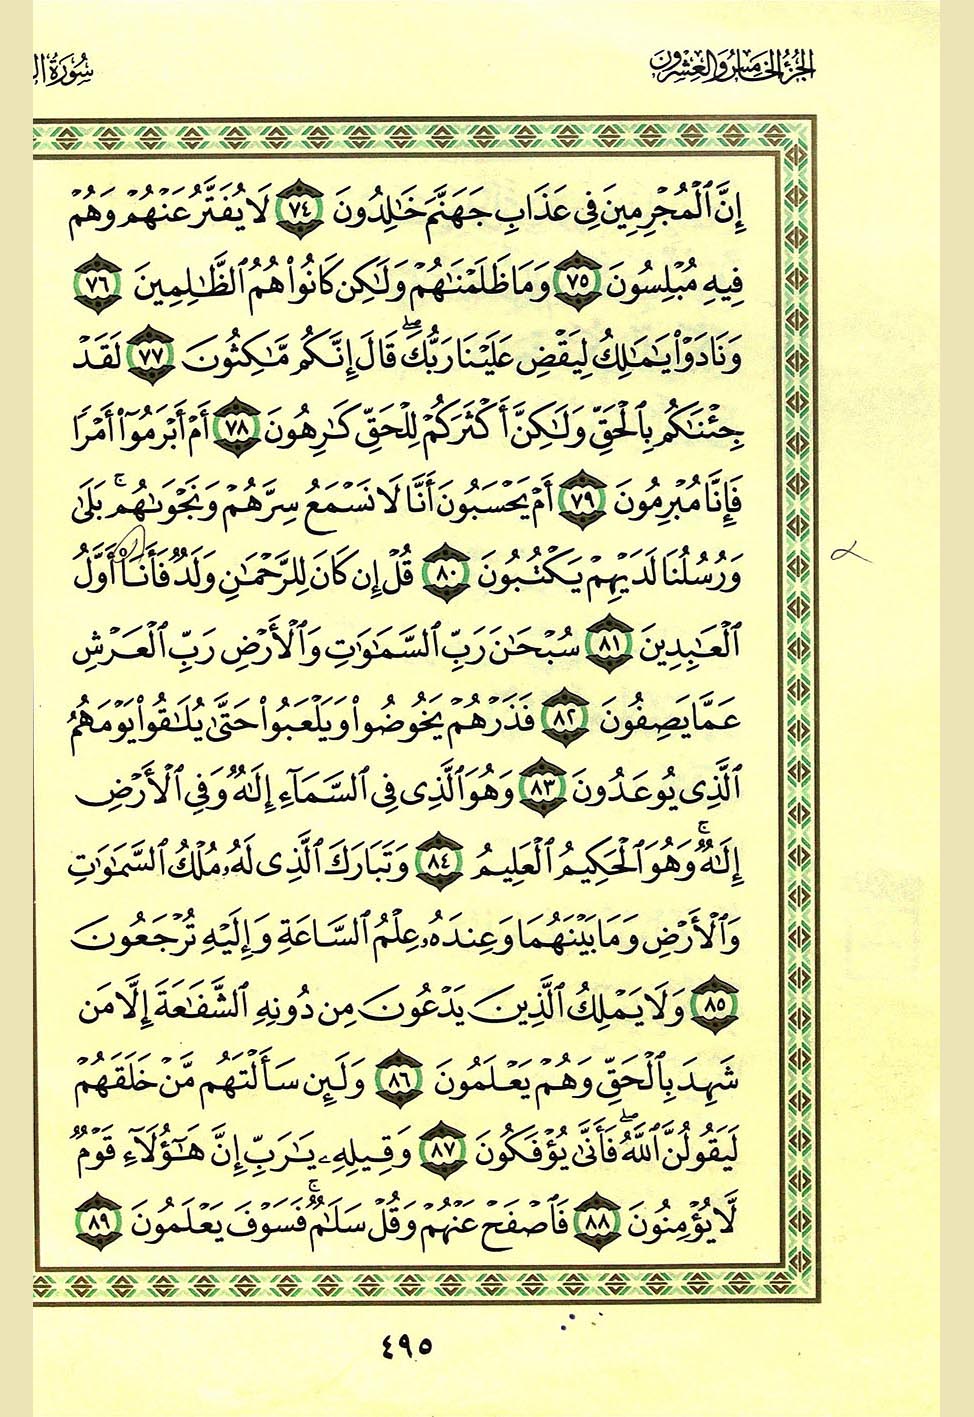 الجزء الخامس والعشرون
سورة
إِنَّ ٱلْمُجْرِمِينَ فِى عَذَابِ جَهَنَّمَ خَٰلِدُونَ ٧٤ لَا يُفَتَّرُ عَنْهُمْ وَهُمْ
فِيهِ مُبْلِسُونَ ٧٥ وَمَا ظَلَمْنَٰهُمْ وَلَٰكِن كَانُوا۟ هُمُ ٱلظَّٰلِمِينَ ٧٦
وَنَادَوْا۟ يَٰمَٰلِكُ لِيَقْضِ عَلَيْنَا رَبُّكَ ۖ قَالَ إِنَّكُم مَّٰكِثُونَ ٧٧ لَقَدْ
جِئْنَٰكُم بِٱلْحَقِّ وَلَٰكِنَّ أَكْثَرَكُمْ لِلْحَقِّ كَٰرِهُونَ ٧٨ أَمْ أَبْرَمُوٓا۟ أَمْرًا
فَإِنَّا مُبْرِمُونَ ٧٩ أَمْ يَحْسَبُونَ أَنَّا لَا نَسْمَعُ سِرَّهُمْ وَنَجْوَىٰهُم ۚ بَلَىٰ
وَرُسُلُنَا لَدَيْهِمْ يَكْتُبُونَ ٨٠ قُلْ إِن كَانَ لِلرَّحْمَٰنِ وَلَدٌ فَأَنَا۠ أَوَّلُ
ٱلْعَٰبِدِينَ ٨١ سُبْحَٰنَ رَبِّ ٱلسَّمَٰوَٰتِ وَٱلْأَرْضِ رَبِّ ٱلْعَرْشِ
عَمَّا يَصِفُونَ ٨٢ فَذَرْهُمْ يَخُوضُوا۟ وَيَلْعَبُوا۟ حَتَّىٰ يُلَٰقُوا۟ يَوْمَهُمُ
ٱلَّذِى يُوعَدُونَ ٨٣ وَهُوَ ٱلَّذِى فِى ٱلسَّمَآءِ إِلَٰهٌ وَفِى ٱلْأَرْضِ
إِلَٰهٌ ۚ وَهُوَ ٱلْحَكِيمُ ٱلْعَلِيمُ ٨٤ وَتَبَارَكَ ٱلَّذِى لَهُۥ مُلْكُ ٱلسَّمَٰوَٰتِ
وَٱلْأَرْضِ وَمَا بَيْنَهُمَا وَعِندَهُۥ عِلْمُ ٱلسَّاعَةِ وَإِلَيْهِ تُرْجَعُونَ
٨٥ وَلَا يَمْلِكُ ٱلَّذِينَ يَدْعُونَ مِن دُونِهِ ٱلشَّفَٰعَةَ إِلَّا مَن
شَهِدَ بِٱلْحَقِّ وَهُمْ يَعْلَمُونَ ٨٦ وَلَئِن سَأَلْتَهُم مَّنْ خَلَقَهُمْ
لَيَقُولُنَّ ٱللَّهُ ۖ فَأَنَّىٰ يُؤْفَكُونَ ٨٧ وَقِيلِهِۦ يَٰرَبِّ إِنَّ هَٰٓؤُلَآءِ قَوْمٌ
لَّا يُؤْمِنُونَ ٨٨ فَٱصْفَحْ عَنْهُمْ وَقُلْ سَلَٰمٌ ۚ فَسَوْفَ يَعْلَمُونَ ٨٩
٤٩٥